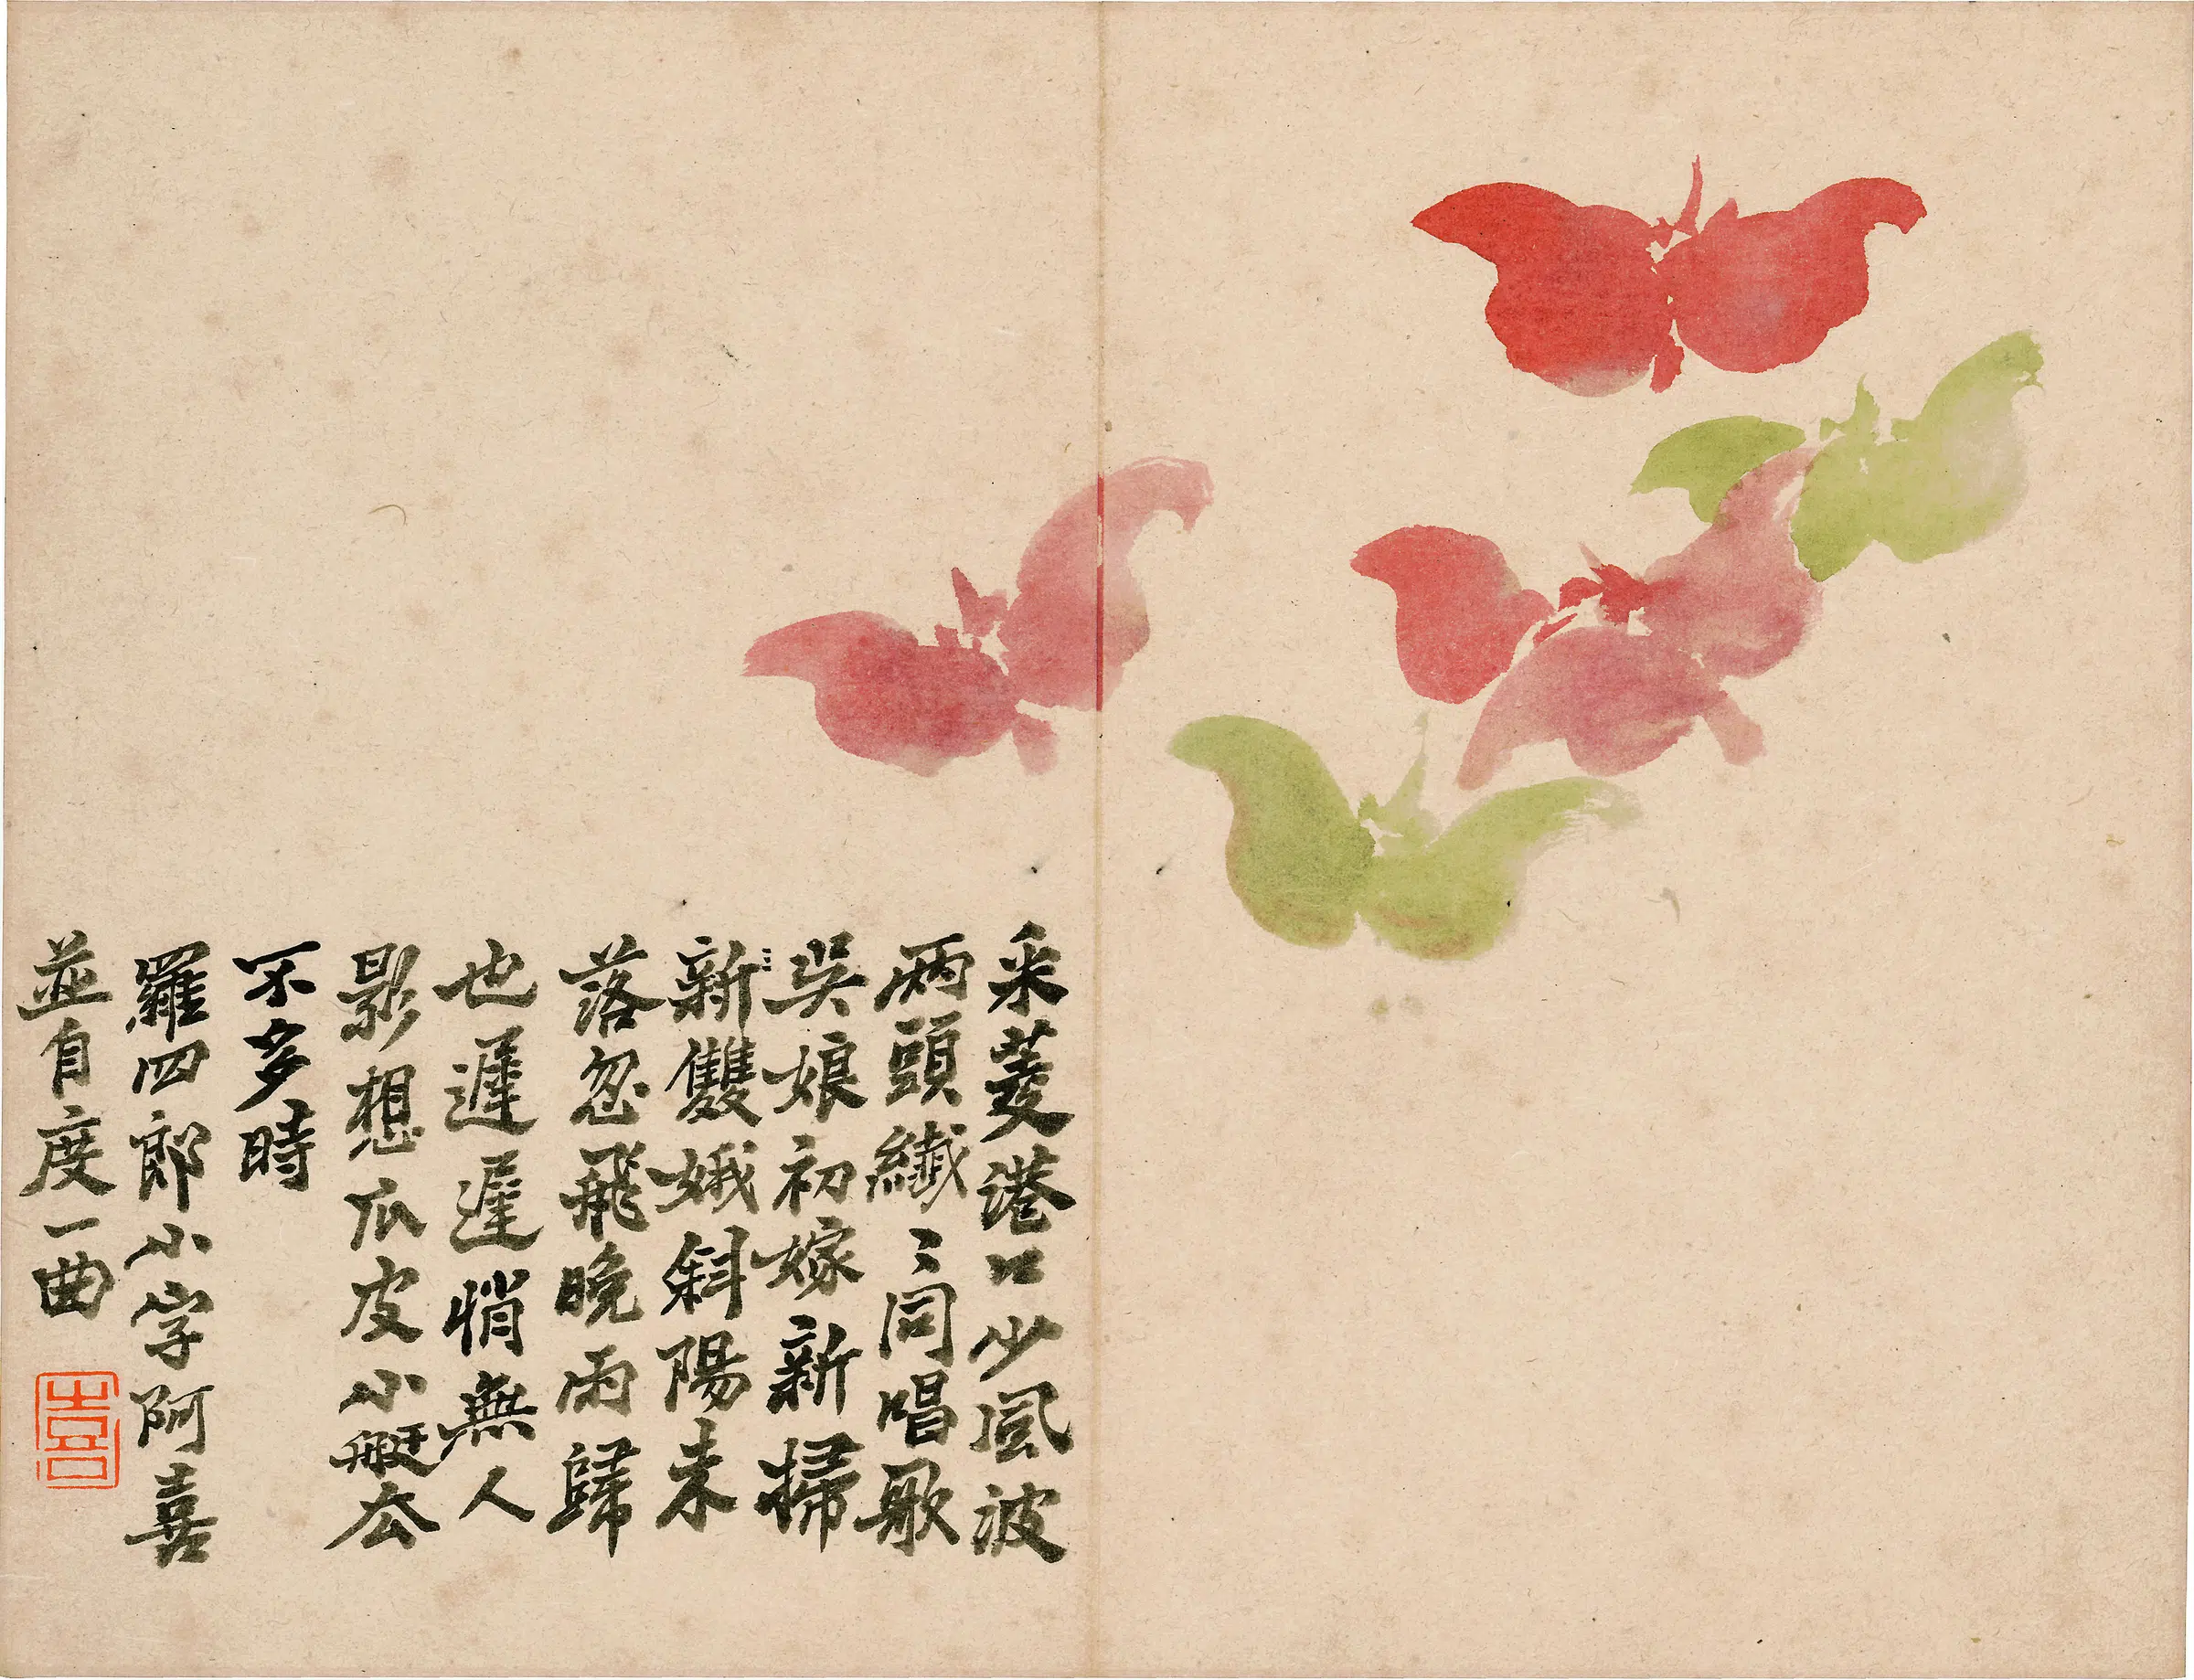 采菱港口少風波
兩頭纖〻同唱歌
吳娘初嫁新掃
新雙娥斜陽未
落忽飛晚雨歸
也遲遲悄無人
影想瓜皮小艇厺
不多時
羅四郎小字阿喜
並自度一曲
喜